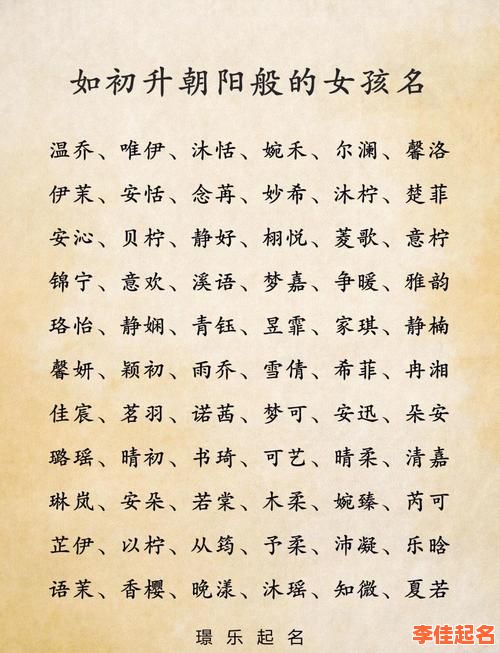 如初升朝阳般的女孩名
温乔、唯伊、沐恬、婉禾、尔澜、馨洛
伊茉、安恬、念苒、妙希、沐柠、楚菲
安沁、贝柠、静好、栩悦、菱歌、意柠
锦宁、意欢、溪语、梦嘉、争暖、雅韵
珞怡、静娴、青钰、昱霏、家琪、静楠
馨妍、颖初、雨乔、雪倩、希菲、冉湘
佳宸、茗羽、诺茜、梦可、安迅、朵安
璐瑶、晴初、书琦、可艺、晴柔、清嘉
琳岚、安朵、若棠、木柔、婉臻、芮可
芷伊、以柠、从筠、予柔、沛凝、乐晗
语茉、香樱、晚漾、沐瑶、知微、夏若
璟乐起名
李佳起名